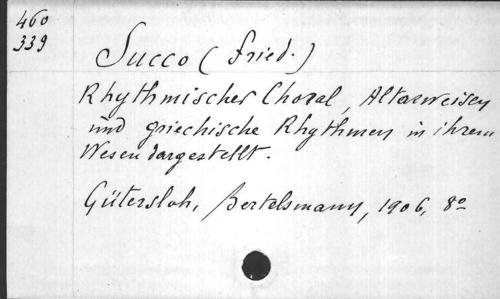 460
339
Succo (Fried.)
Rhythmischer Choral, Altarweisen
und griechische Rhythmen in ihrem
Wesen dargestellt.
Gütersloh, Bertelsmann, 1906, 8o